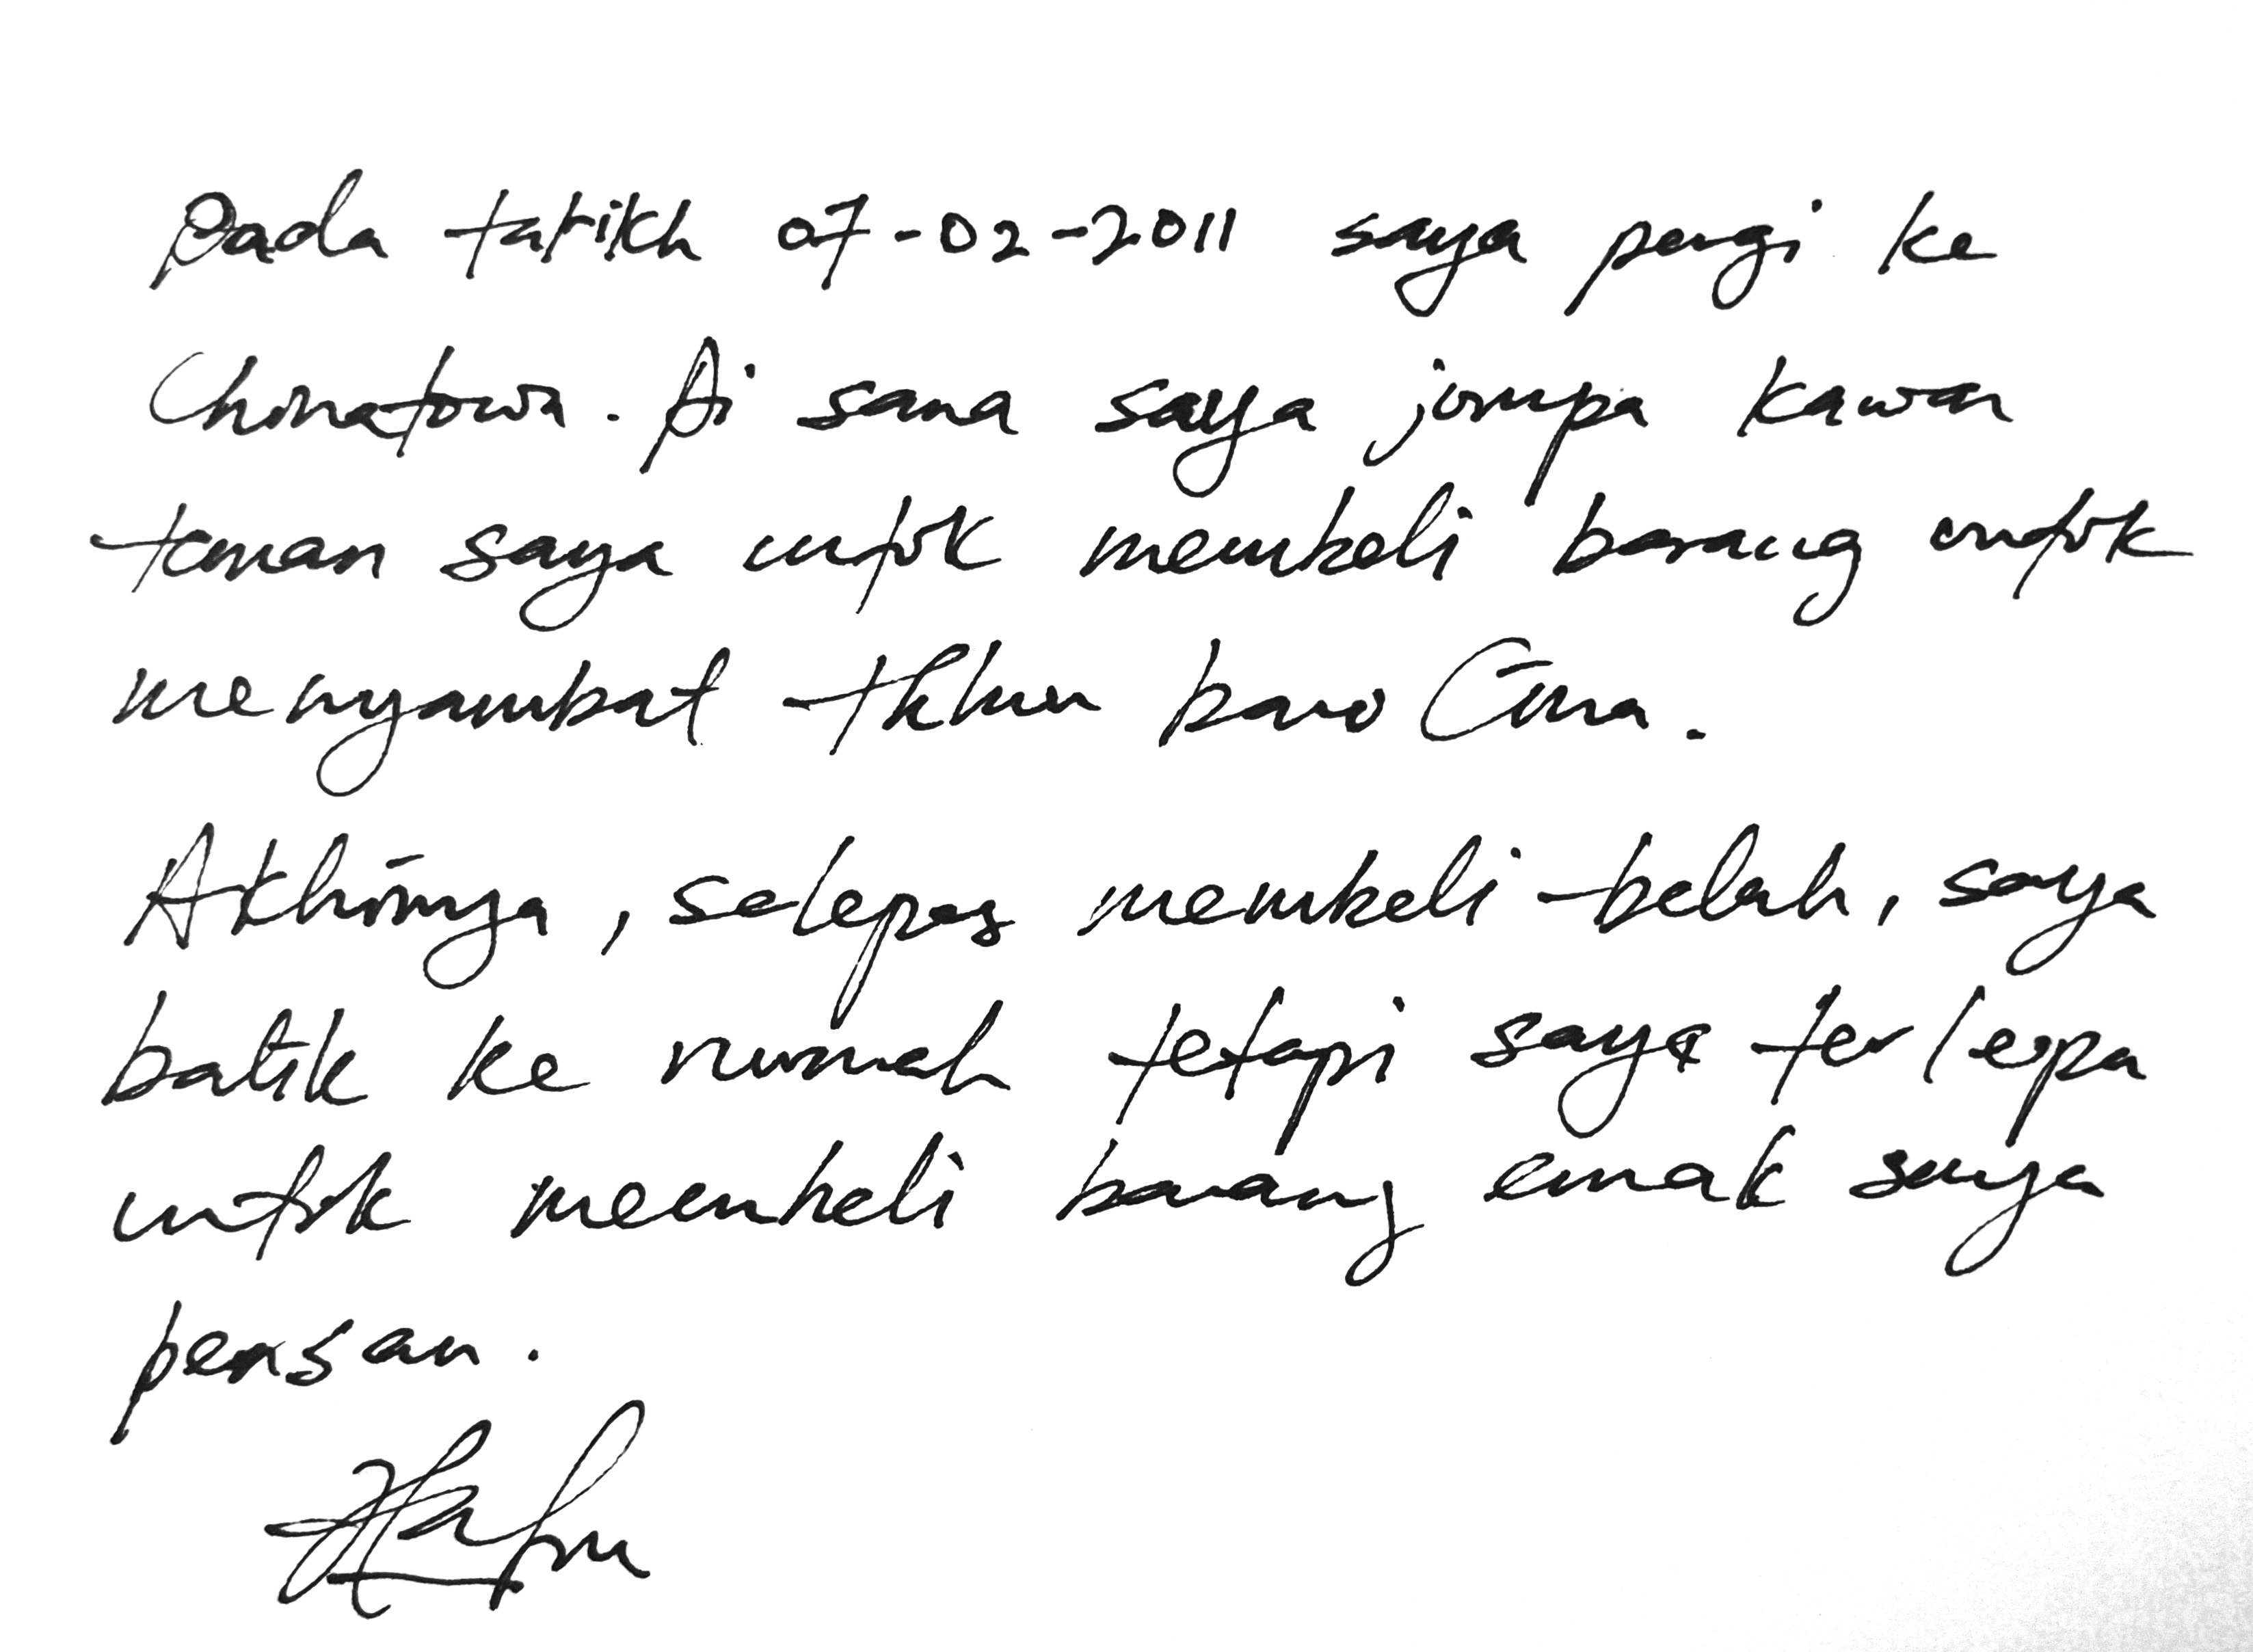 Pada tarikh 07-02-2011 saya pergi ke
Chinatown. Di sana saya jompa kawan
teman saya untuk membeli barang untuk
menyambut tahun baru Cina.
Akhirnya, selepas membeli-belah, saya
balik ke rumah tetapi saya terlepa
untuk membeli barang emak saya
pensan.